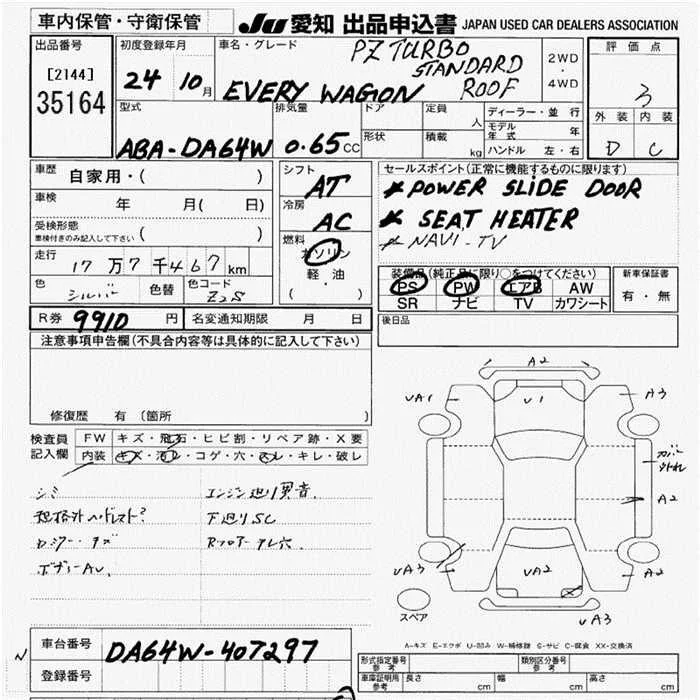 車内保管・守衛保管
JU 愛知 出品申込書 JAPAN USED CAR DEALERS ASSOCIATION
出品番号
[2144]
35164
初度登録年月
24 10月
車名・グレード
PZ TURBO
STANDARD
ROOF
EVERY WAGON
2WD
・
4WD
評価点
3
外装 内装
D C
型式
ABA-DA64W
排気量
0.65cc
ドア
形状
定員 人
積載 kg
ディーラー・並行
モデル年式 年
ハンドル 左・右
車歴 自家用・( )
車検 年 月( 日)
受検形態
車検付きのみ記入して下さい ( )
走行
17万7千467km
色 シルバー 色替 色コード Z2S
シフト
AT
冷房
AC
燃料
ガソリン
軽油
( ・ )
セールスポイント(正常に機能するものに限ります)
* POWER SLIDE DOOR
* SEAT HEATER
* NAVI・TV
装備品(純正品に限り○をつけてください)
PS PW エアB AW
SR ナビ TV カワシート
新車保証書
有・無
R券 9910円 名変通知期限 月 日
後日品
注意事項申告欄(不具合内容等は具体的に記入して下さい)
修復歴 有 (箇所 )
検査員
記入欄
FW キズ・飛石・ヒビ割・リペア跡・X要
内装 キズ・汚レ・コゲ・穴・スレ・キレ・破レ
シミ エンジン廻り異音.
規格外ヘッドレスト? 下廻りSC
ボデーAU.
A2
UA1 U1 A3
カバー
外れ
A2
UA3 UA2 A2
UA3
スペア
A-キズ E-エクボ U-凹み W-補修跡 S-サビ C-腐食 XX-交換済
N
車台番号 DA64W-407297
登録番号
形式指定番号
参考
類別区分番号
参考
車庫証明用
参考
長さ cm 幅 cm 高さ cm